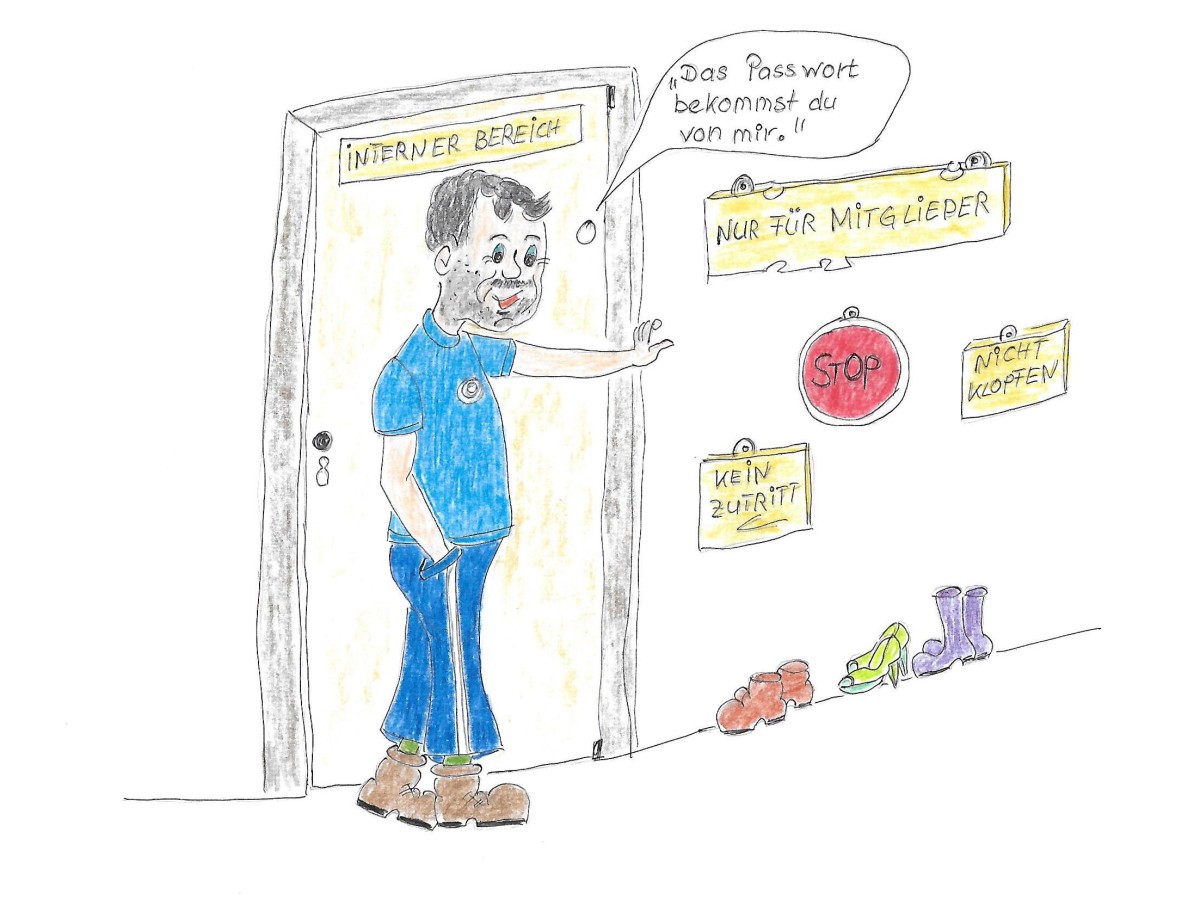 „Das Passwort
bekommst du
von mir."
iNTERNER BEREiCH
NUR FÜR MiTGLiEDER
STOP
NiCHT
KLOPFEN
KEiN
ZUTRiTT